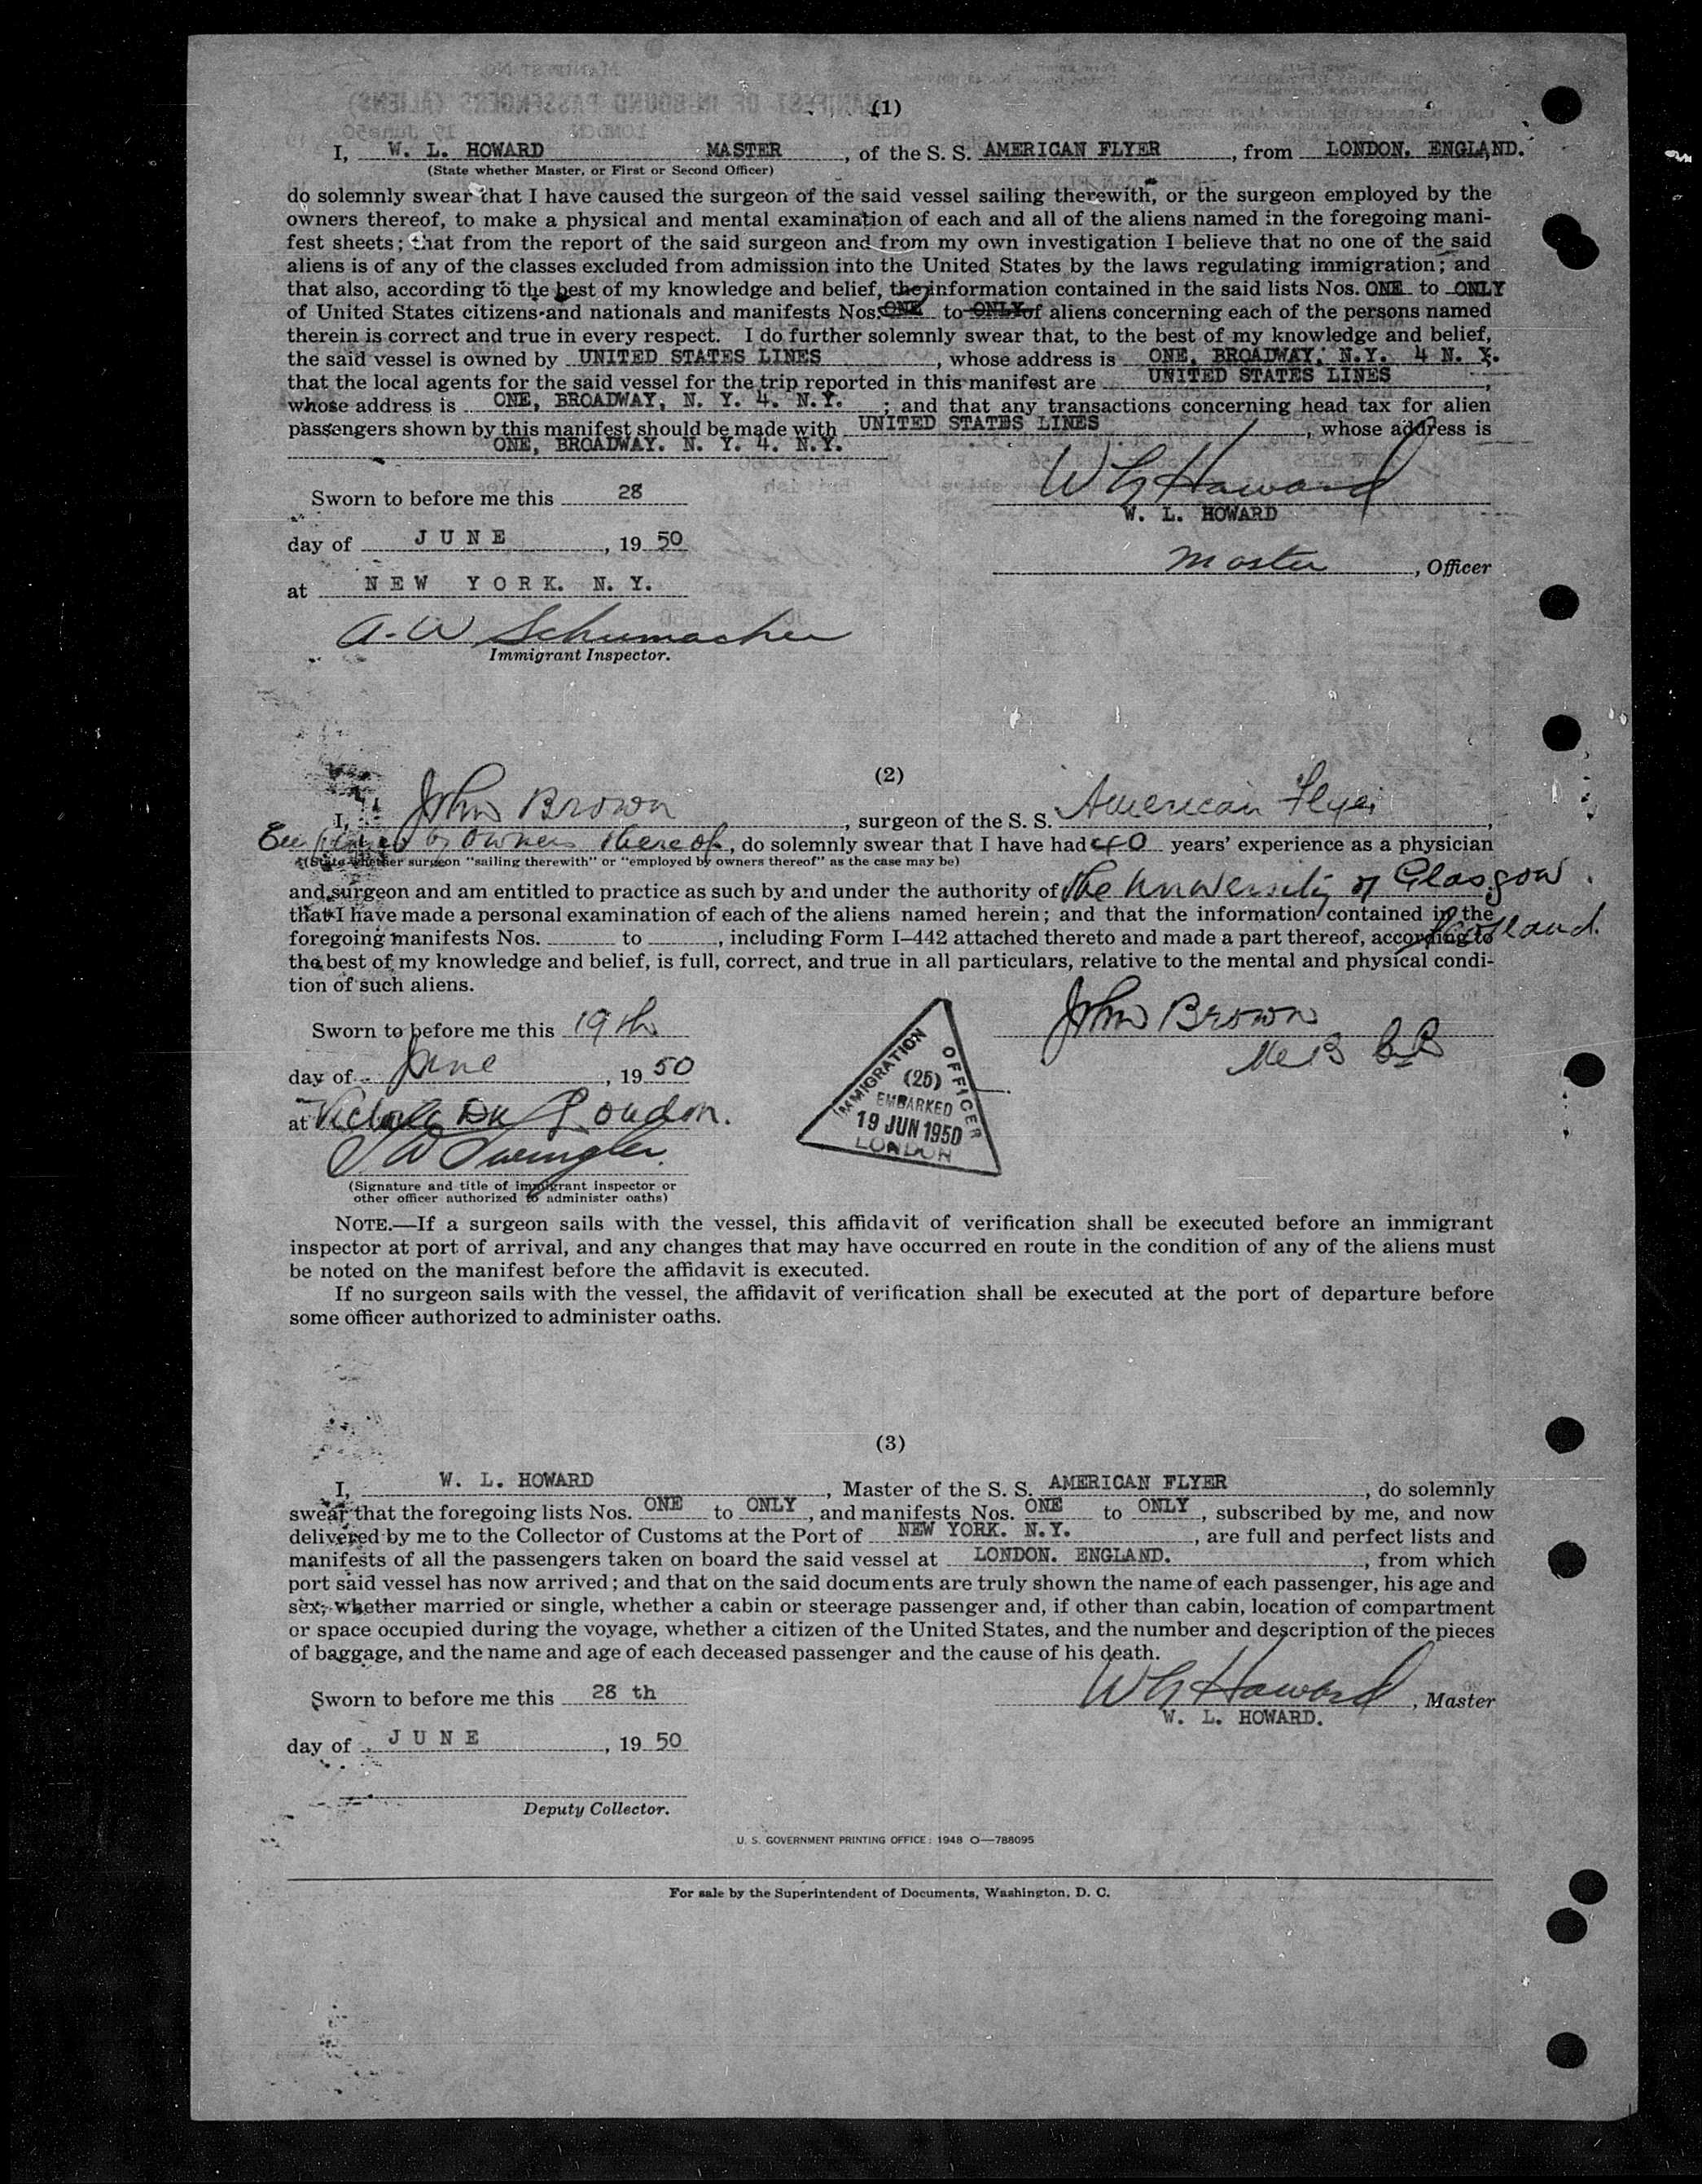 (1)
I, W. L. HOWARD MASTER, of the S. S. AMERICAN FLYER, from LONDON. ENGLAND.
(State whether Master, or First or Second Officer)
do solemnly swear that I have caused the surgeon of the said vessel sailing therewith, or the surgeon employed by the
owners thereof, to make a physical and mental examination of each and all of the aliens named in the foregoing mani-
fest sheets; that from the report of the said surgeon and from my own investigation I believe that no one of the said
aliens is of any of the classes excluded from admission into the United States by the laws regulating immigration; and
that also, according to the best of my knowledge and belief, the information contained in the said lists Nos. ONE to ONLY
of United States citizens and nationals and manifests Nos. ONE to ONLY of aliens concerning each of the persons named
therein is correct and true in every respect. I do further solemnly swear that, to the best of my knowledge and belief,
the said vessel is owned by UNITED STATES LINES, whose address is ONE, BROADWAY, N.Y. 4 N. Y.
that the local agents for the said vessel for the trip reported in this manifest are UNITED STATES LINES,
whose address is ONE, BROADWAY, N. Y. 4. N.Y. ; and that any transactions concerning head tax for alien
passengers shown by this manifest should be made with UNITED STATES LINES, whose address is
ONE, BROADWAY. N. Y. 4. N.Y.
W L Howard
Sworn to before me this 28
W. L. HOWARD
day of JUNE, 19 50
Master, Officer
at NEW YORK. N. Y.
A. W Schumacher
Immigrant Inspector.
(2)
I, John Brown, surgeon of the S. S. American Flyer,
Employed by Owners thereof, do solemnly swear that I have had 40 years' experience as a physician
(State whether surgeon "sailing therewith" or "employed by owners thereof" as the case may be)
and surgeon and am entitled to practice as such by and under the authority of the University of Glasgow.
that I have made a personal examination of each of the aliens named herein; and that the information contained in the
Scotland.
foregoing manifests Nos. to , including Form I–442 attached thereto and made a part thereof, according to
the best of my knowledge and belief, is full, correct, and true in all particulars, relative to the mental and physical condi-
tion of such aliens.
John Brown
Sworn to before me this 19th
M B Ch B
day of June, 19 50
at Victoria Dk London.
(Signature and title of immigrant inspector or
other officer authorized to administer oaths)
IMMIGRATION OFFICER
(25)
EMBARKED
19 JUN 1950
LONDON
NOTE.—If a surgeon sails with the vessel, this affidavit of verification shall be executed before an immigrant
inspector at port of arrival, and any changes that may have occurred en route in the condition of any of the aliens must
be noted on the manifest before the affidavit is executed.
If no surgeon sails with the vessel, the affidavit of verification shall be executed at the port of departure before
some officer authorized to administer oaths.
(3)
I, W. L. HOWARD, Master of the S. S. AMERICAN FLYER, do solemnly
swear that the foregoing lists Nos. ONE to ONLY, and manifests Nos. ONE to ONLY, subscribed by me, and now
delivered by me to the Collector of Customs at the Port of NEW YORK. N.Y., are full and perfect lists and
manifests of all the passengers taken on board the said vessel at LONDON. ENGLAND., from which
port said vessel has now arrived; and that on the said documents are truly shown the name of each passenger, his age and
sex, whether married or single, whether a cabin or steerage passenger and, if other than cabin, location of compartment
or space occupied during the voyage, whether a citizen of the United States, and the number and description of the pieces
of baggage, and the name and age of each deceased passenger and the cause of his death.
Sworn to before me this 28 th
W L Howard, Master
W. L. HOWARD.
day of JUNE, 19 50
Deputy Collector.
U. S. GOVERNMENT PRINTING OFFICE: 1948 O—788095
For sale by the Superintendent of Documents, Washington, D. C.